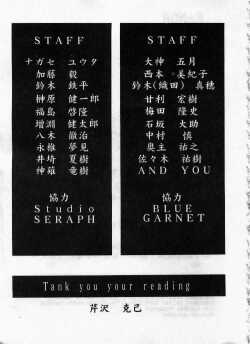 STAFF
ナガセ ユウタ
加藤 毅
鈴木 鉄平
榊原 健一郎
福島 啓隆
増淵 健太郎
八木 徹治
永椎 夢見
井埼 夏樹
神羅 竜樹
協力
Studio
SERAPH
STAFF
大神 五月
西本 美紀子
鈴木(織田) 真穂
甘利 宏樹
梅田 隆史
石坂 大助
中村 慎
奥主 祐之
佐々木 祐樹
AND YOU
協力
BLUE
GARNET
Tank you your reading
芹沢 克己